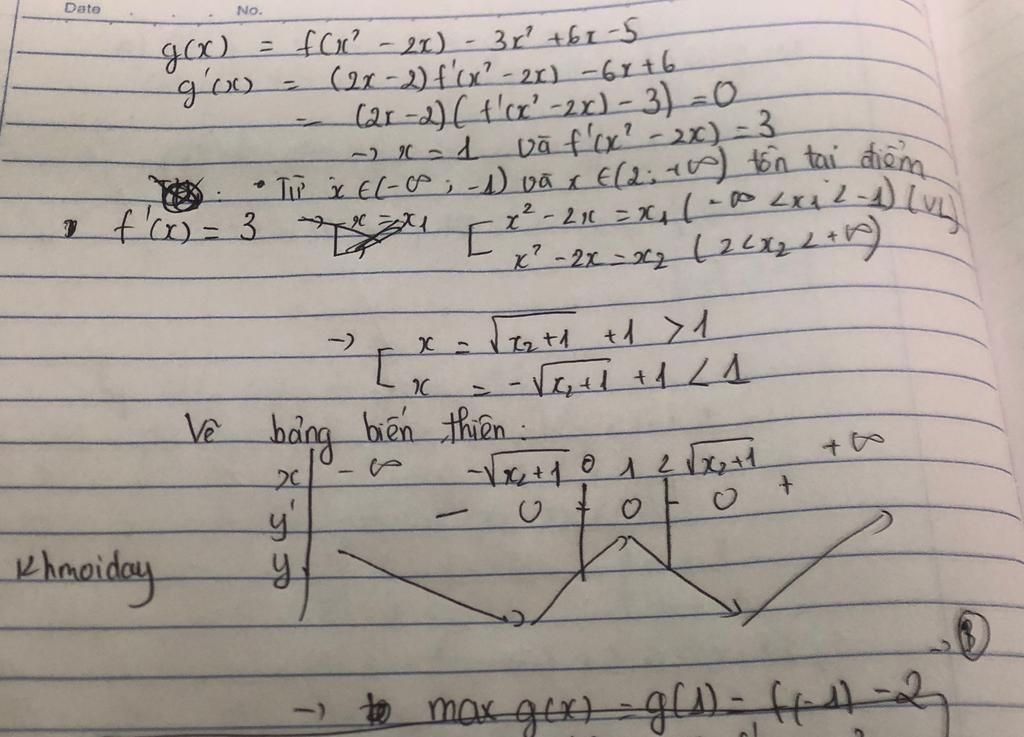 Date No.
g(x) = f(x² - 2x) - 3x² + 6x - 5
g'(x) = (2x - 2) f'(x² - 2x) - 6x + 6
= (2x - 2) ( f'(x² - 2x) - 3) = 0
→ x = 1 và f'(x² - 2x) = 3
• Từ x ∈ (-∞ ; -1) và x ∈ (2 ; +∞) tồn tại điểm
• f'(x) = 3 → [ x² - 2x = x₁ ( -∞ < x₁ < -1) (VL)
x² - 2x = x₂ ( 2 < x₂ < +∞)
→ [ x = √x₂+1 + 1 > 1
x = -√x₂+1 + 1 < 1
Vẽ bảng biến thiên :
x - ∞ -√x₂+1 0 1 2 √x₂+1 + ∞
y' - 0 + 0 - 0 +
Khmoiday y
→ B
→ max g(x) = g(1) = f(-1) - 2